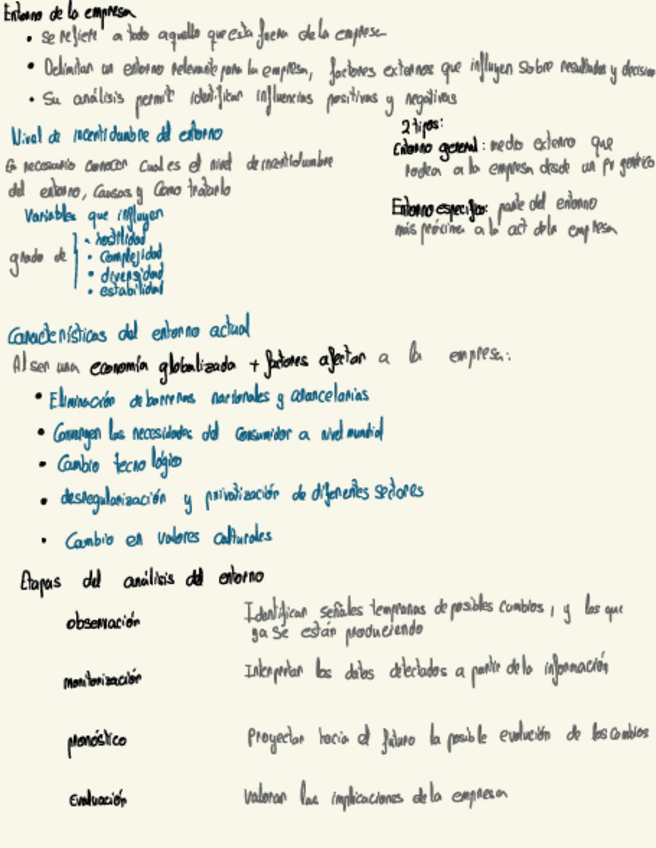 Entorno de la empresa
• se refiere a todo aquello que esta fuera de la empresa
• Delimitar un entorno relevante para la empresa, factores externos que influyen sobre resultados y decision
• Su análisis permite identificar influencias positivas y negativas
Nivel de incertidumbre del entorno
Es necesario conocer cual es el nivel de incertidumbre
del entorno, causas y como tratarlo
Variables que influyen
grado de
• hostilidad
• complejidad
• diversidad
• estabilidad
2 tipos:
Entorno general: medio externo que
rodea a la empresa desde un pv genérico
Entorno especifico: parte del entorno
más próxima a la act de la empresa
Características del entorno actual
Al ser una economía globalizada + factores afectan a la empresa:
• Eliminación de barreras nacionales y arancelarias
• Convergen las necesidades del consumidor a nivel mundial
• Cambio tecnológico
• desregularización y privatización de diferentes sectores
• Cambio en valores culturales
Etapas del análisis del entorno
observación
Identificar señales tempranas de posibles cambios, y los que
ya se están produciendo
monitorización
Interpretar los datos detectados a partir de la información
pronóstico
Proyectar hacia el futuro la posible evolución de los cambios
Evaluación
valorar las implicaciones de la empresa